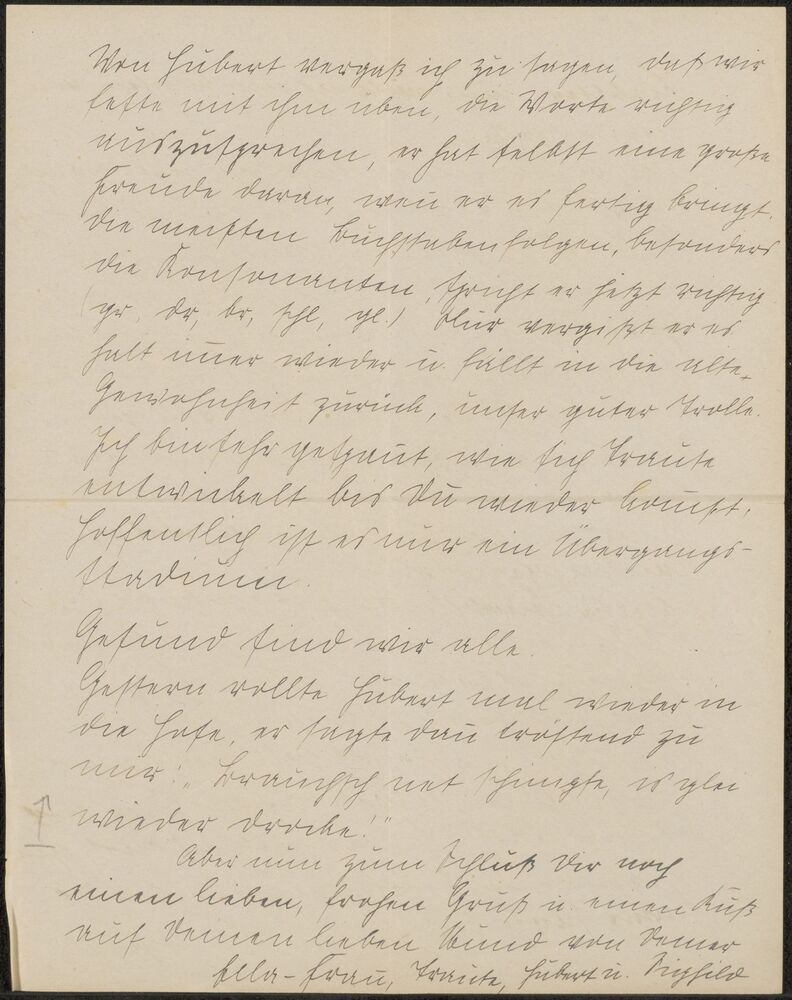 Von Hubert vergaß ich zu sagen, daß wir
feste mit ihm üben, die Worte richtig
auszusprechen, er hat selbst eine große
Freude daran, weñ er es fertig bringt.
Die meisten Buchstabenfolgen, besonders
die Konsonanten, spricht er jetzt richtig
(gr, dr, br, schl, gl.) Nur vergißt er es
halt im̃er wieder u. fällt in die alte
Gewohnheit zurück, unser guter Trolle.
Ich bin sehr gespañt, wie sich Traute
entwickelt bis Du wieder kom̃st,
hoffentlich ist es nur ein Übergangs-
stadium.
Gesund sind wir alle.
Gestern rollte Hubert mal wieder in
die Hose, er sagte dañ tröstend zu
mir: „Brauchsch net schimpfe, is glei
wieder drocke!"
Aber nun zum Schluß Dir noch
einen lieben, frohen Gruß u. einen Kuß
auf Deinen lieben Mund von Deiner
Ella-Frau, Traute, Hubert u. Sighild